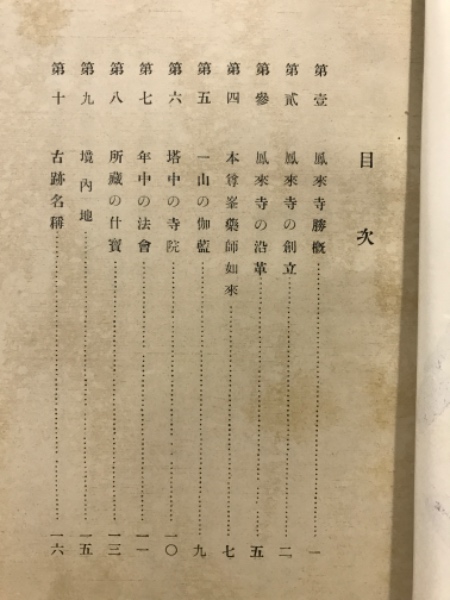 目次
第壹 鳳來寺勝概……一
第貳 鳳來寺の創立……二
第參 鳳來寺の沿革……五
第四 本尊峯藥師如來……七
第五 一山の伽藍……九
第六 塔中の寺院……一〇
第七 年中の法會……一一
第八 所藏の什寶……一三
第九 境內地……一五
第十 古跡名稱……一六